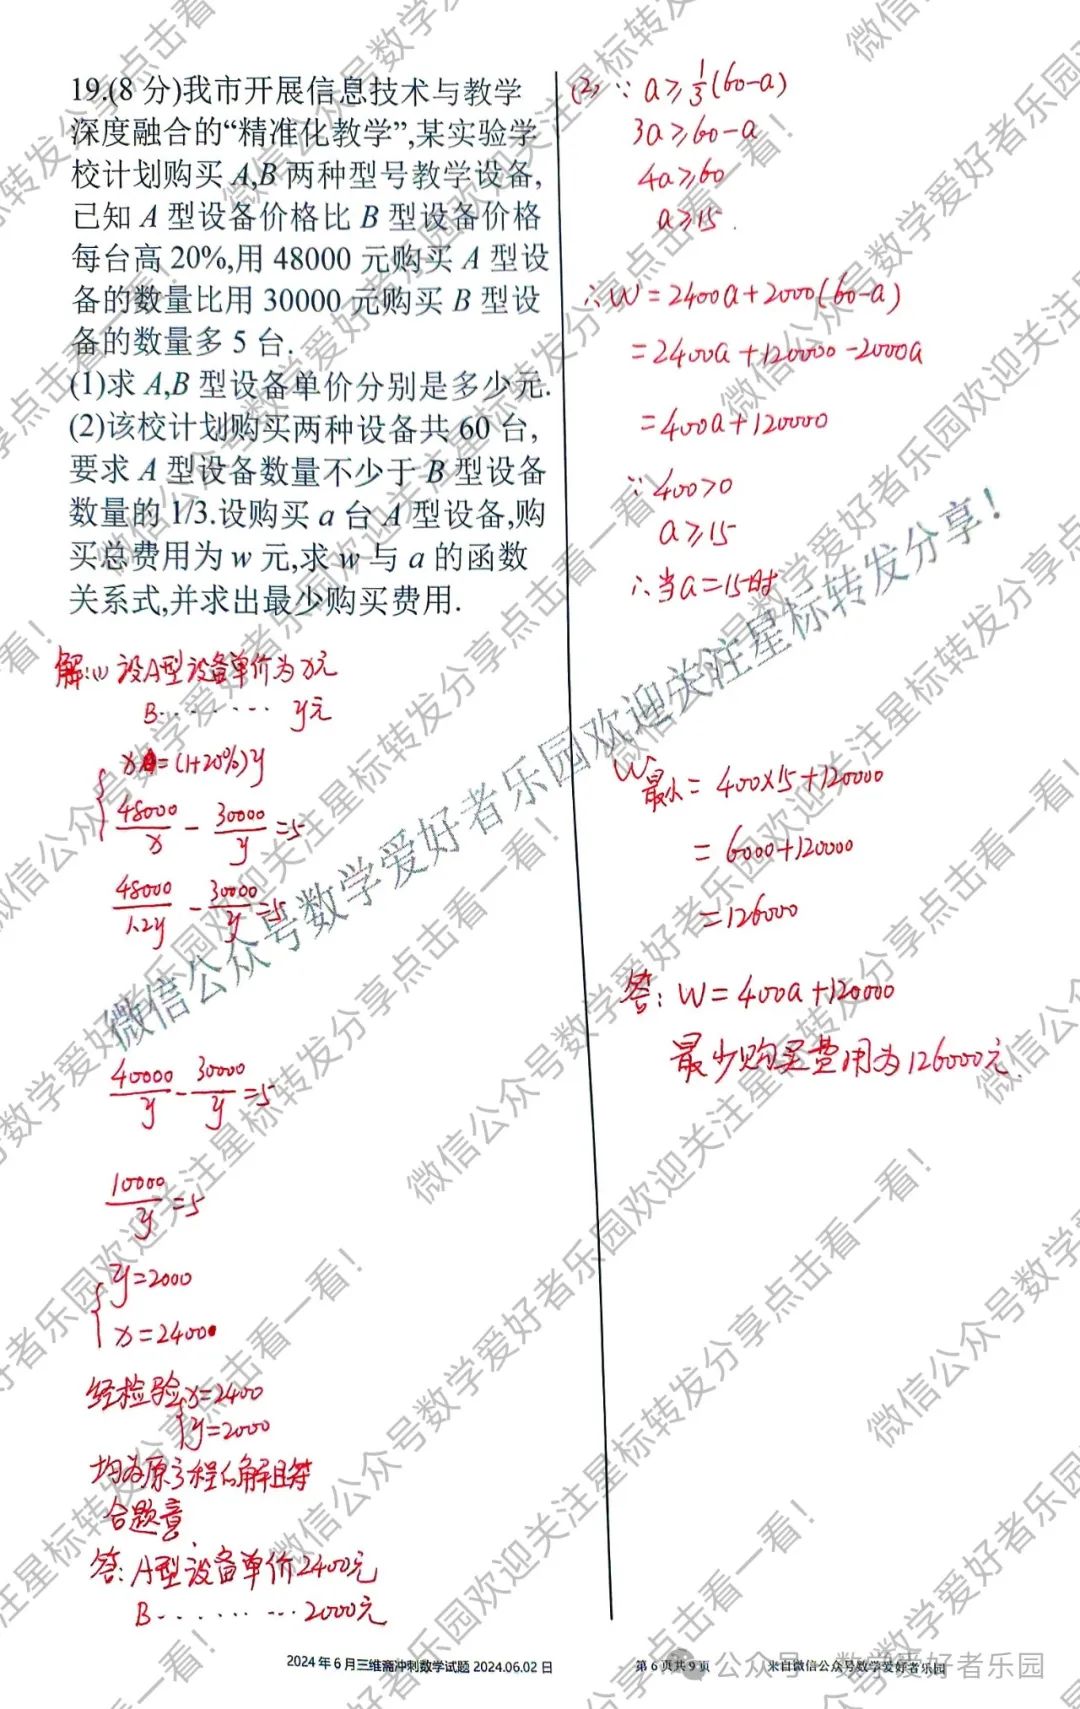 19.(8 分)我市开展信息技术与教学
深度融合的“精准化教学”,某实验学
校计划购买 A,B 两种型号教学设备,
已知 A 型设备价格比 B 型设备价格
每台高 20%,用 48000 元购买 A 型设
备的数量比用 30000 元购买 B 型设
备的数量多 5 台.
(1)求 A,B 型设备单价分别是多少元.
(2)该校计划购买两种设备共 60 台,
要求 A 型设备数量不少于 B 型设备
数量的 1/3.设购买 a 台 A 型设备,购
买总费用为 w 元,求 w 与 a 的函数
关系式,并求出最少购买费用.
解:(1) 设A型设备单价为x元
B······· y元
x=(1+20%)y
48000/x - 30000/y =5
48000/1.2y - 30000/y =5
40000/y - 30000/y =5
10000/y =5
y=2000
x=2400
经检验 x=2400
y=2000
均为原方程的解且符
合题意
答: A型设备单价2400元
B········ 2000元
(2) ∵ a≥1/3(60-a)
3a≥60-a
4a≥60
a≥15.
∴W=2400a+2000(60-a)
=2400a+120000-2000a
=400a+120000
∵400>0
a≥15
∴当a=15时
W最小= 400×15+120000
= 6000+120000
=126000
答: W=400a+120000
最少购买费用为126000元.
微信公众号数学爱好者乐园欢迎关注星标转发分享!
微信公众号数学爱好者乐园欢迎关注星标转发分享点击看一看!
2024 年 6 月三维斋冲刺数学试题 2024.06.02 日
第 6 页共 9 页
来自微信公众号数学爱好者乐园
公众号·数学爱好者乐园